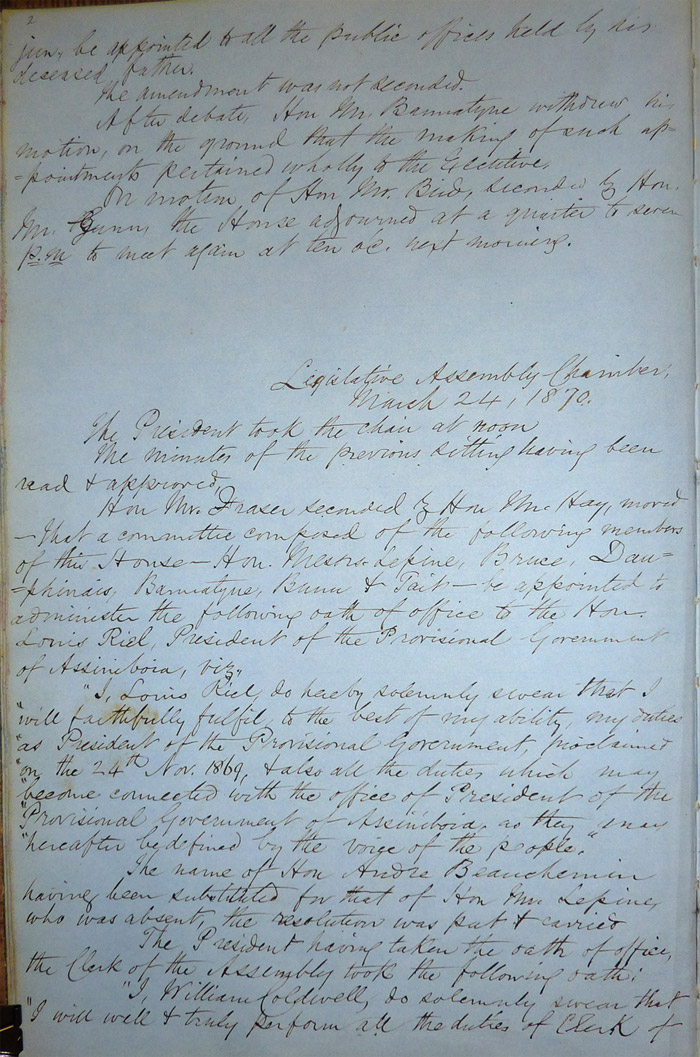 2
jun. be appointed to all the public offices held by his
deceased father.
The amendment was not seconded.
After debate, Hon Mr. Bannatyne withdrew his
motion, on the ground that the making of such ap-
-pointments pertained wholly to the Executive.
On motion of Hon Mr. Bird, seconded by Hon.
Mr. Gunn, the House adjourned at a quarter to seven
p.m to meet again at ten oc. next morning.
Legislative Assembly Chamber,
March 24, 1870.
The President took the chair at noon
The minutes of the previous sitting having been
read & approved,
Hon Mr. Fraser seconded by Hon Mr. Hay, moved
- That a committee composed of the following members
of this House - Hon. Messrs. Lepine, Bruce, Dau-
-phinais, Bannatyne, Bunn & Tait - be appointed to
administer the following oath of office to the Hon.
Louis Riel, President of the Provisional Government
of Assiniboia, viz.,
"I, Louis Riel, do hereby solemnly swear that I
"will faithfully fulfil, to the best of my ability, my duties
"as President of the Provisional Government, proclaimed
"on the 24th Nov. 1869, & also all the duties which may
"become connected with the office of President of the
"Provisional Government of Assiniboia, as they may
"hereafter be defined by the voice of the people."
The name of Hon Andre Beauchemin
having been substituted for that of Hon Mr. Lepine,
who was absent, the resolution was put & carried
The President having taken the oath of office,
the Clerk of the Assembly took the following oath:
"I, William Coldwell, do solemnly swear that
"I will well & truly perform all the duties of Clerk of